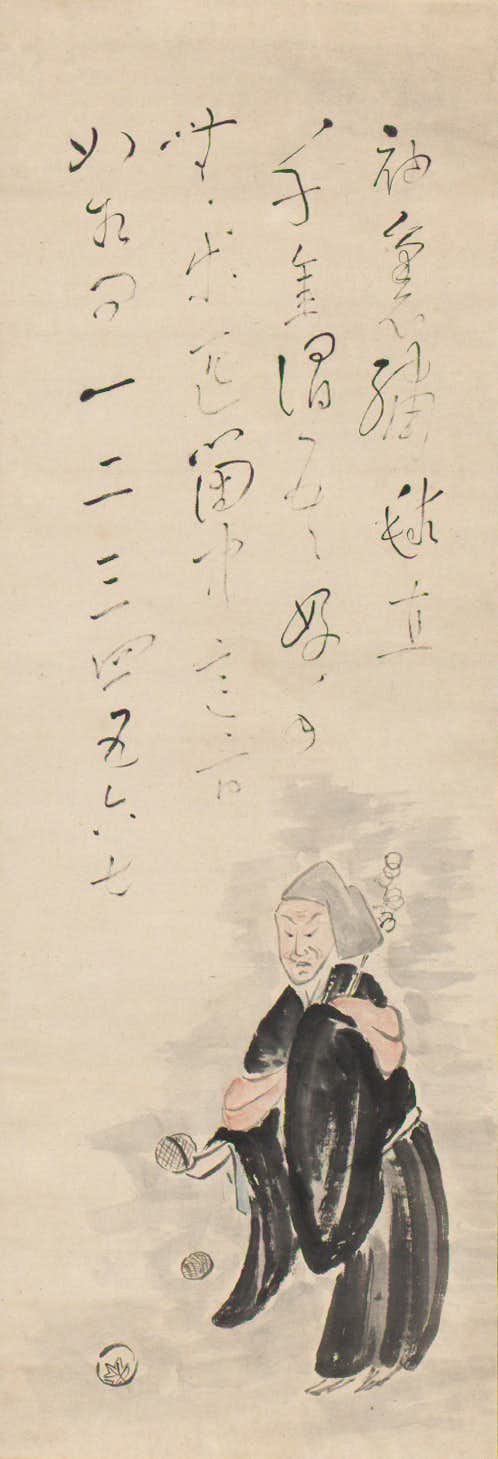 袖裏繍毬直
千金謂吾好手
無等匹箇中意旨
如相問一二三四五六七